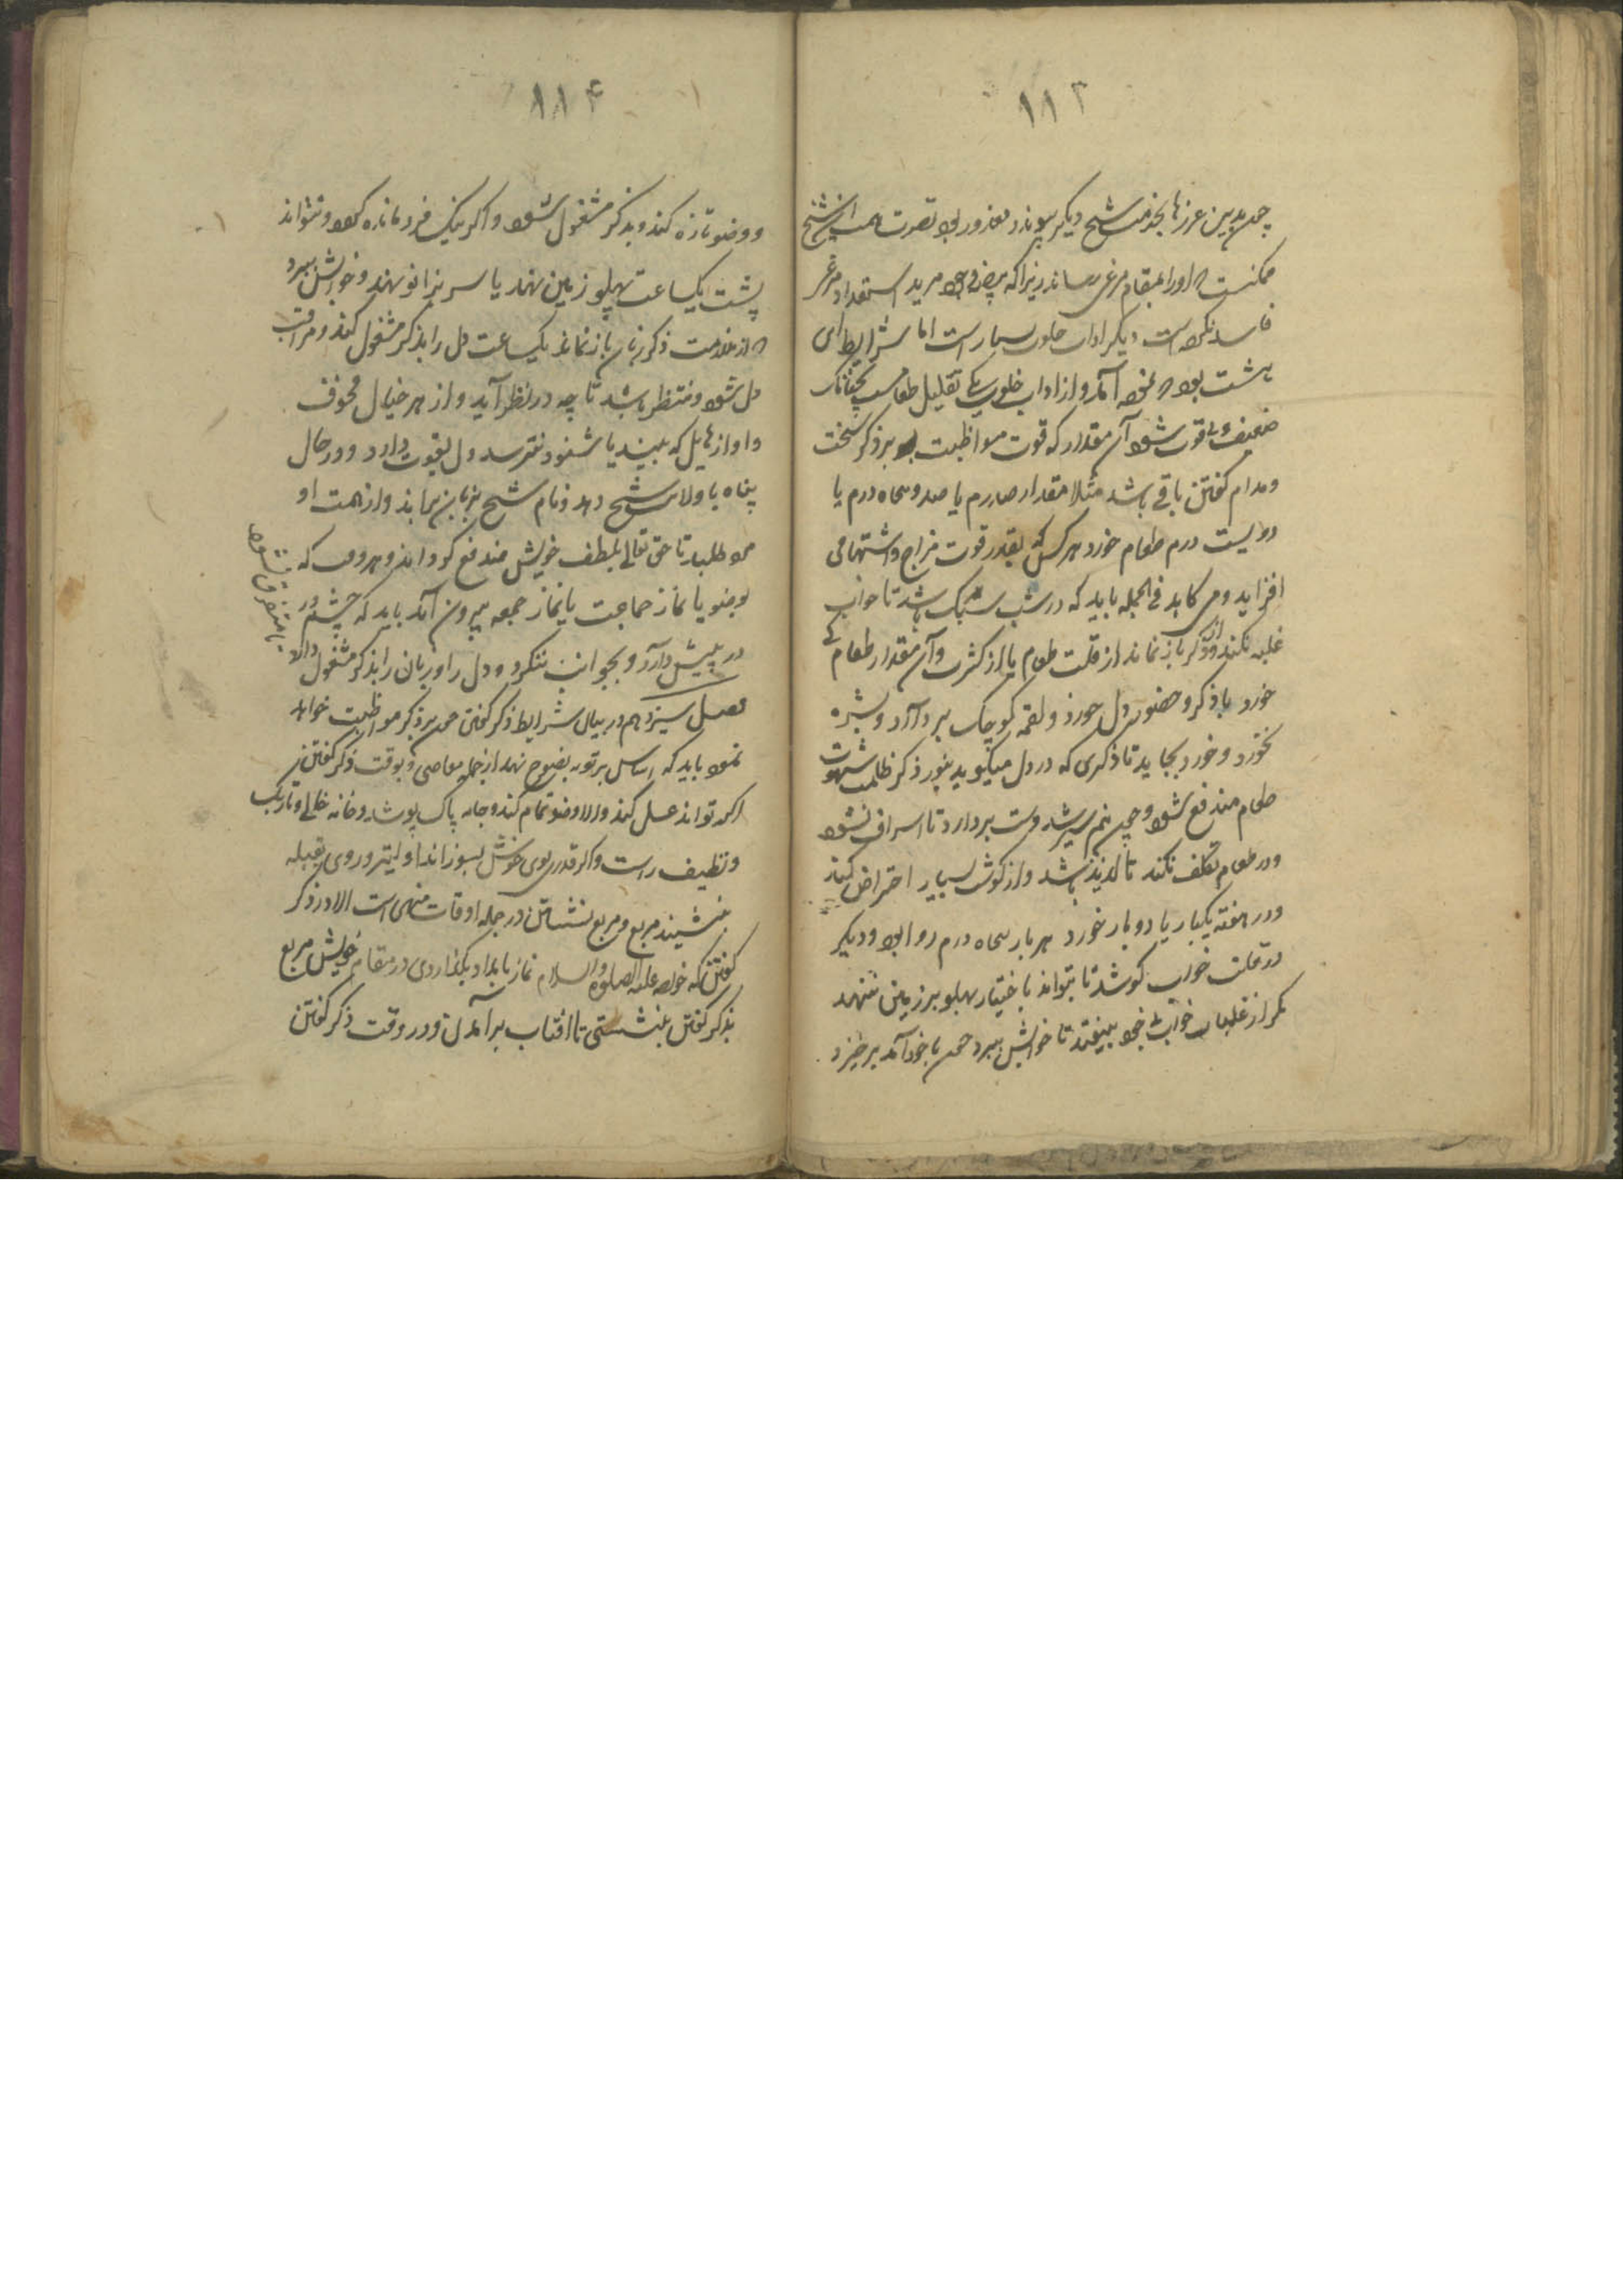 ۱۱۳
چون بدین عزرها بخدمت شیخ دیگر پیوندد معذور بود تصرف همت آن شیخ
ممکنست که او را بمقام مرغی رساند زیرا که بیضه وجود مرید استعداد مرغی
فاسد نکرده است دیگر اداب خلوت بسیار است اما شرایط ای
هشت بود که نموده آمد و از اداب خلوت یکی تقلیل طعامست نچنانک
ضعیف و بی قوت شود آن مقدار که قوت مواظبت بر ذکر سخت
و مدام گفتن باقی باشد مثلا مقدار صد درم یا صد و پنجاه درم یا
دویست درم طعام خورد هر کس که بقدر قوت مزاج و اشتها می
افزاید و می کاهد فی الجمله باید که در شب سبک باشد تا خواب
غلبه نکند و از ذکر باز نماند از قلت طعام یا از کثرت و آن مقدار طعام که
خورد با ذکر و حضور دل خورد و لقمه کوچک بر دارد و بشره
نخورد و خورد بخاید تا ذکری که در دل میگوید بنور ذکر ظلمت شهوت
طعام مندفع شود و چون نیم سیر شد دست بردارد تا اسراف نشود
و در طعام تکلف نکند تا لذیذ باشد و از گوشت بسیار احتراض کند
و در هفته یکبار یا دو بار خورد هر بار پنجاه درم روا بود و دیگر
در قلت خواب کوشد تا بتواند باختیار پهلو بر زمین ننهد
مگر از غلبات خواب بیخود بیفتد تا خوابش ببرد چون با خود آمد برخیزد
۱۱۴
و وضو تازه کند و بذکر مشغول شود و اگر نیک فرو مانده گردد و نتواند
پشت یکساعت پهلو زمین نهد یا سر بزانو نهد و خوابش ببرد
که از ملازمت ذکر زبان باز نماند یکساعت دل را بذکر مشغول کند و مراقب
دل شود و منتظر باشد تا چه در نظر آید و از هر خیال مخوف
و اوازهایل که بیند یا شنود نترسد و دل بقوت دارد و در حال
پناه با ولایت شیخ دهد و نام شیخ بزبان براند و از همت او
مدد طلبد تا حق تعالی بلطف خویش مندفع گرداند و هر وقت که
بوضو یا نماز جماعت یا نماز جمعه بیرون آمد باید که چشم در
در پیش دارد و بجوانب ننگرد و دل را و زبان را بذکر مشغول دارد
تا متفرق نشود
فصل سیزدهم در بیان شرایط ذکر گفتن چون بر ذکر مواظبت خواهد
نمود باید که اساس بر توبه نصوح نهد از جمله معاصی و بوقت ذکر گفتن
اگر تواند غسل کند و الا وضو تمام کند و جامه پاک پوشد و خانه خالی و تاریک
و نظیف راست و اگر قدری بوی خوش بسوزاند اولیتر و روی بقبله
بنشیند مربع و مربع نشستن در جمله اوقات منهی است الا در ذکر
گفتن که خواجه علیه الصلوة و السلام نماز بامداد بگذاردی در مقام خویش مربع
بذکر گفتن بنشستی تا افتاب برآمدن و در وقت ذکر گفتن